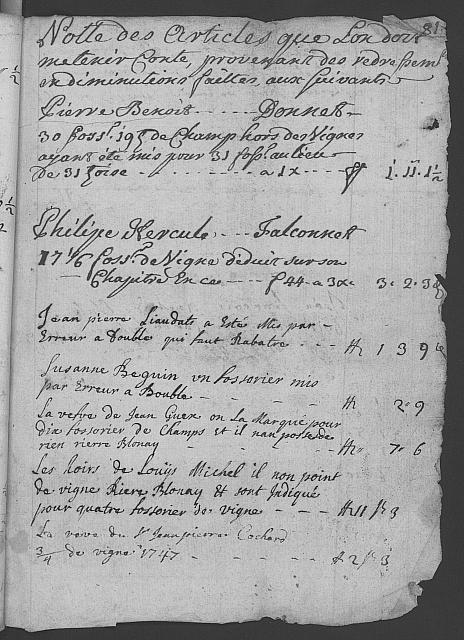 81
Notte des Articles que Lon doit
me tenir Conte, provenant des redressem.
en diminutions faittes, aux suivants
Pierre Benoit - - - - - Donnet
30 foss.r 19 t de Champ hors des Vignes
ayant été mis pour 31 foss.r au lieu
de 31 toise - - - - - - - a 1x - - - ff 1. 11. 1½
Philipe Hercule - - - Falconnet
17 1/6 foss.r de Vigne déduit sur son
Chapitre En ca - - - f 44 a 3x. 3. 2. 3
Jean pierre Liaudat a Esté Mis par -
Erreur a Double qui faut Rabatre - - - ff 1 3 9
Susanne Beguin vn fossorier mis
par Erreur a Double - - - ff 2 9
La vefve de Jean Guex on La Marqué pour
dix fossorier de Champs et il nan possede
rien rierre Blonay - - - ff 7 6
Les hoirs de Louÿs Michel il non point
de vigne Riere Blonay et sont Indiqué
pour quatre fossorier de vigne - - - ff 11 ſ 3
La veve du Sr Jean pierre Cochard
3/4 de vigne 1747 - - - - ff 2 ſ 3